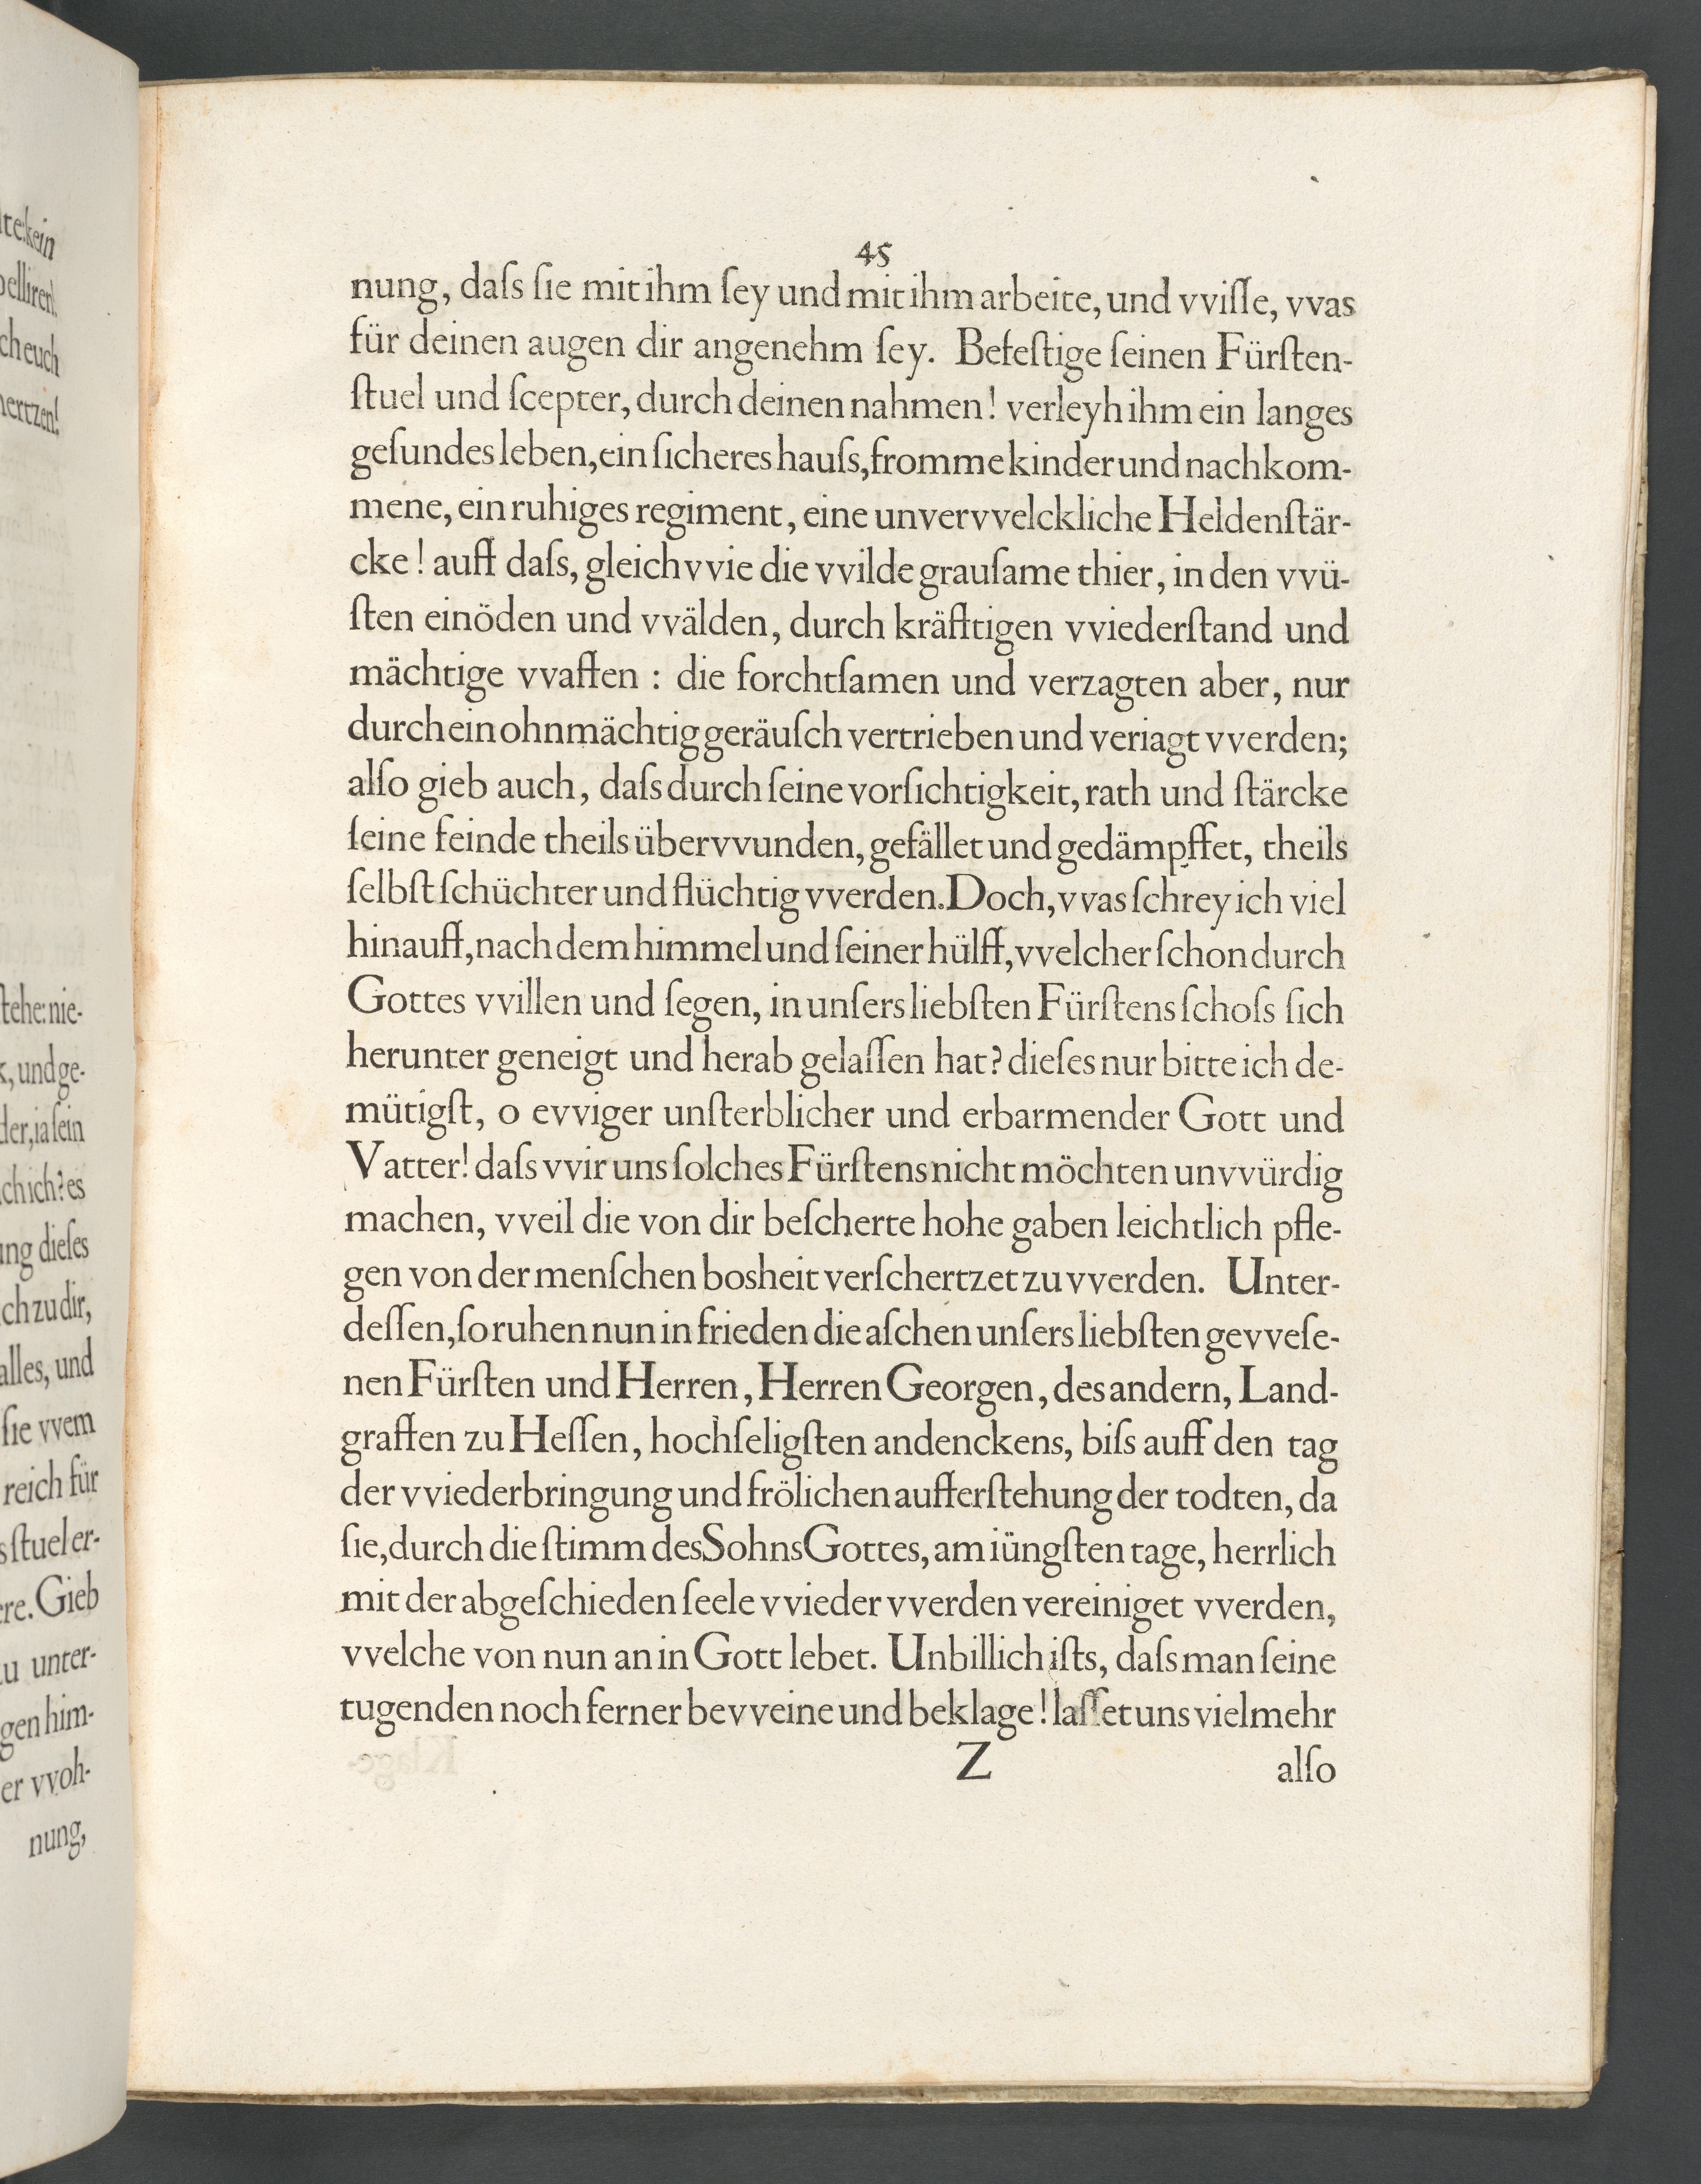 45
nung, daſs ſie mit ihm ſey und mit ihm arbeite, und vviſſe, vvas
für deinen augen dir angenehm ſey. Befeſtige ſeinen Fürſten-
ſtuel und ſcepter, durch deinen nahmen! verleyh ihm ein langes
geſundes leben, ein ſicheres hauſs, fromme kinder und nachkom-
mene, ein ruhiges regiment, eine unvervvelckliche Heldenſtär-
cke! auff daſs, gleich vvie die vvilde grauſame thier, in den vvü-
ſten einöden und vvälden, durch kräfftigen vviederſtand und
mächtige vvaffen : die forchtſamen und verzagten aber, nur
durch ein ohnmächtig geräuſch vertrieben und veriagt vverden;
alſo gieb auch, daſs durch ſeine vorſichtigkeit, rath und ſtärcke
ſeine feinde theils übervvunden, gefället und gedämpffet, theils
ſelbſt ſchüchter und flüchtig vverden. Doch, vvas ſchrey ich viel
hinauff, nach dem himmel und ſeiner hülff, vvelcher ſchon durch
Gottes vvillen und ſegen, in unſers liebſten Fürſtens ſchoſs ſich
herunter geneigt und herab gelaſſen hat? dieſes nur bitte ich de-
mütigſt, o evviger unſterblicher und erbarmender Gott und
Vatter! daſs vvir uns ſolches Fürſtens nicht möchten unvvürdig
machen, vveil die von dir beſcherte hohe gaben leichtlich pfle-
gen von der menſchen bosheit verſchertzet zu vverden. Unter-
deſſen, ſo ruhen nun in frieden die aſchen unſers liebſten gevveſe-
nen Fürſten und Herren, Herren Georgen, des andern, Land-
graffen zu Heſſen, hochſeligſten andenckens, biſs auff den tag
der vviederbringung und frölichen aufferſtehung der todten, da
ſie, durch die ſtimm des Sohns Gottes, am iüngſten tage, herrlich
mit der abgeſchieden ſeele vvieder vverden vereiniget vverden,
vvelche von nun an in Gott lebet. Unbillich iſts, daſs man ſeine
tugenden noch ferner bevveine und beklage! laſſet uns vielmehr
Z alſo